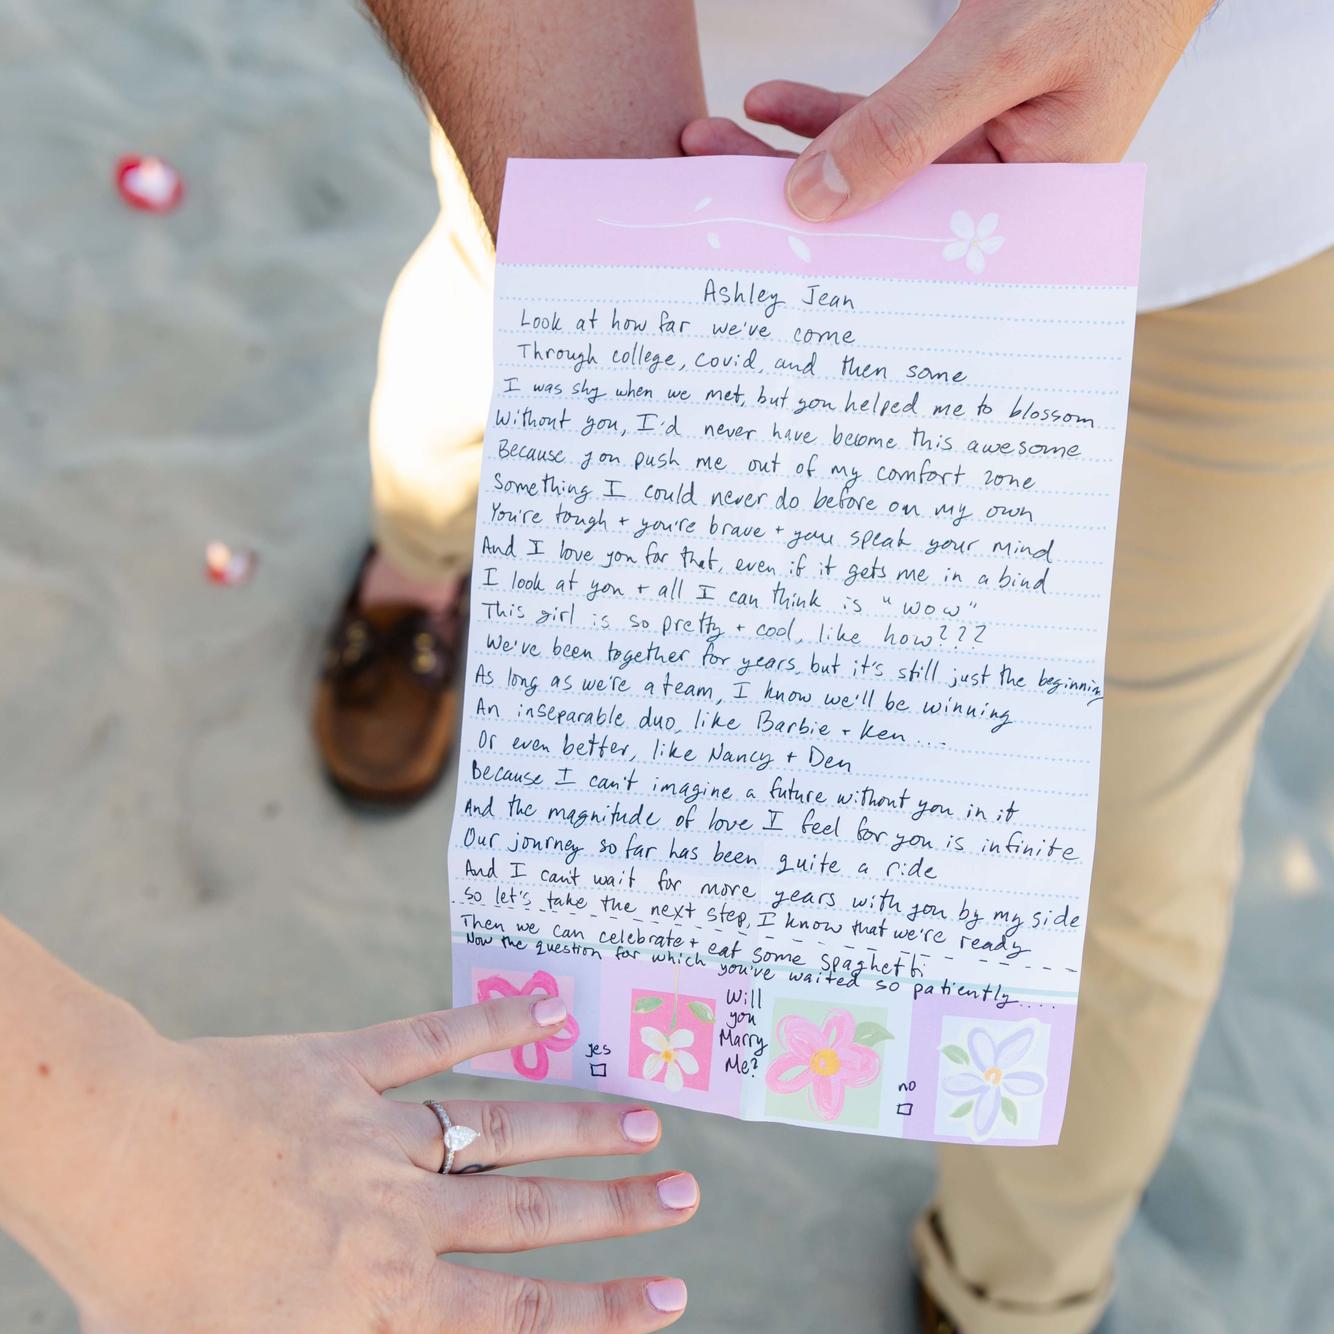 Ashley Jean
Look at how far we've come
Through college, covid, and then some
I was shy when we met, but you helped me to blossom
Without you, I'd never have become this awesome
Because you push me out of my comfort zone
Something I could never do before on my own
You're tough + you're brave + you speak your mind
And I love you for that, even if it gets me in a bind
I look at you + all I can think is "wow"
This girl is so pretty + cool, like how???
We've been together for years, but it's still just the beginning
As long as we're a team, I know we'll be winning
An inseparable duo, like Barbie + Ken...
Or even better, like Nancy + Den
Because I can't imagine a future without you in it
And the magnitude of love I feel for you is infinite
Our journey so far has been quite a ride
And I can't wait for more years with you by my side
So let's take the next step, I know that we're ready
Then we can celebrate + eat some spaghetti
Now the question for which you've waited so patiently....
Will
you
Marry
Me?
yes
no